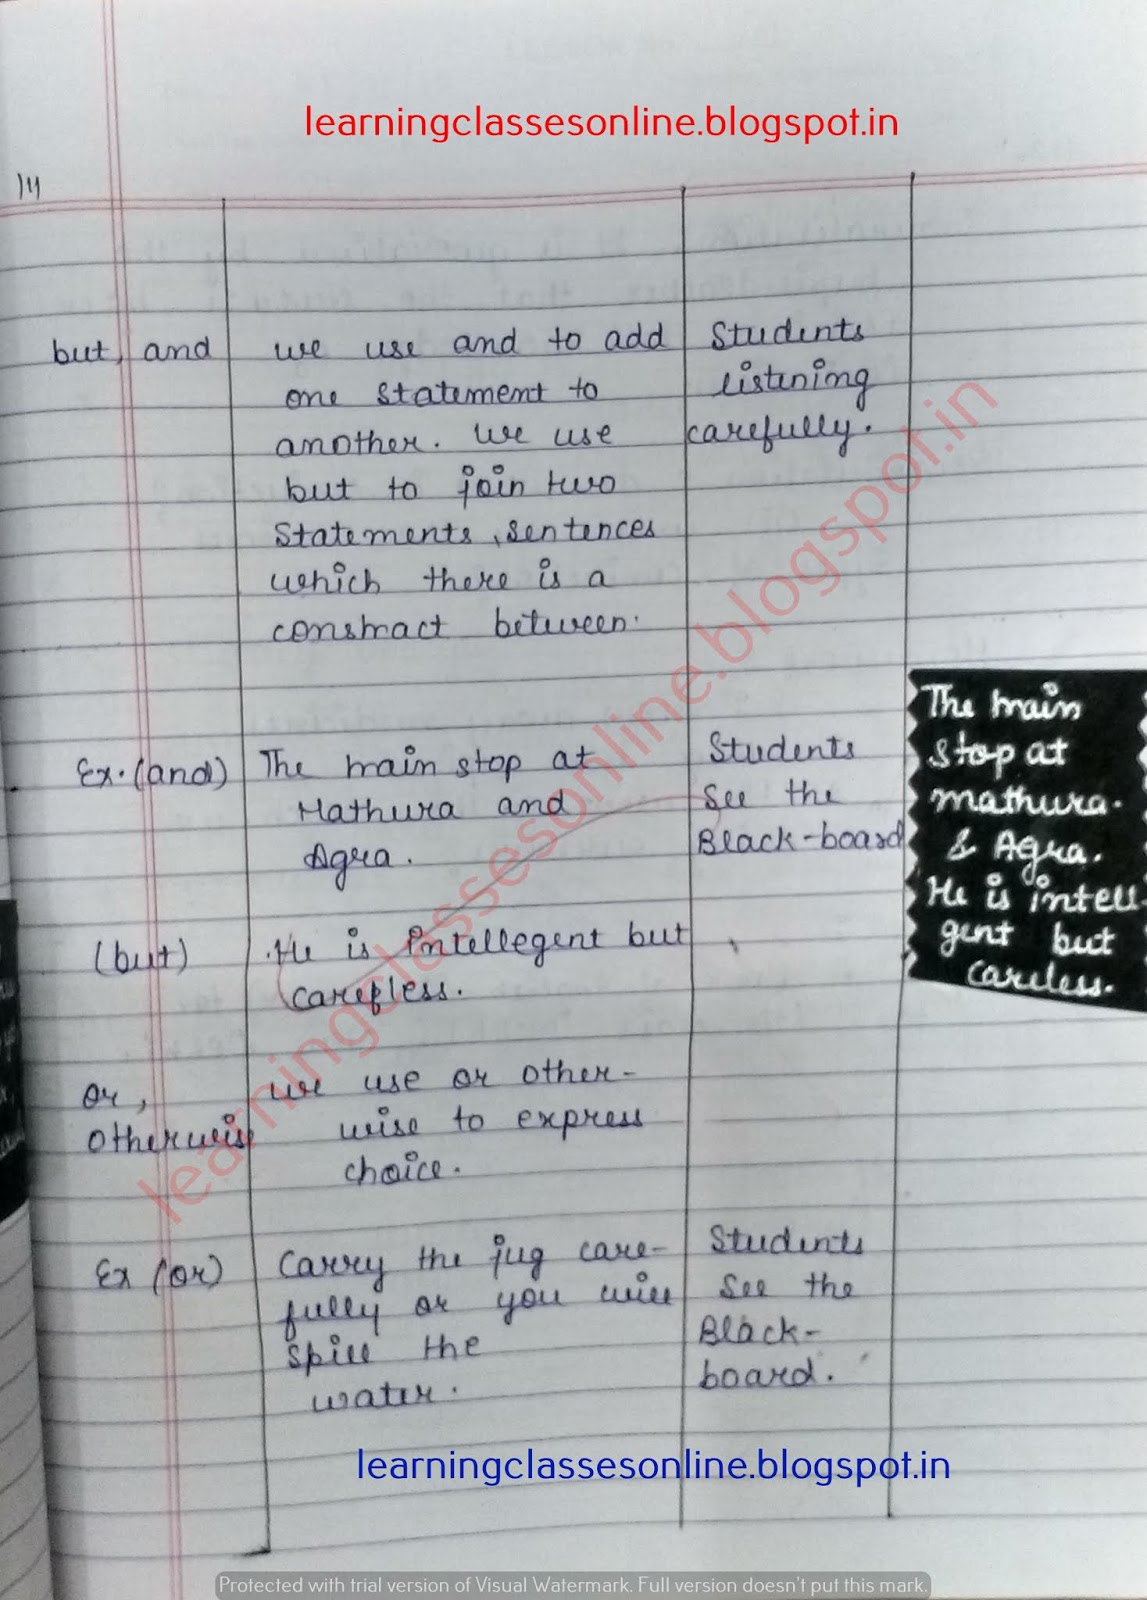 learningclassesonline.blogspot.in
14
but, and
we use and to add
one statement to
another. We use
but to join two
statements, sentences
which there is a
constract between.
Students
listening
carefully.
Ex. (and)
The main stop at
Mathura and
Agra.
Students
See the
Black-board
The main
stop at
mathura.
& Agra.
He is intell-
gent but
careless.
(but)
He is intellegent but
carefless.
or,
otherwis
we use or other-
wise to express
choice.
Ex (or)
Carry the jug care-
fully or you will
spill the
water.
Students
See the
Black-
board.
learningclassesonline.blogspot.in
learningclassesonline.blogspot.in
Protected with trial version of Visual Watermark. Full version doesn't put this mark.